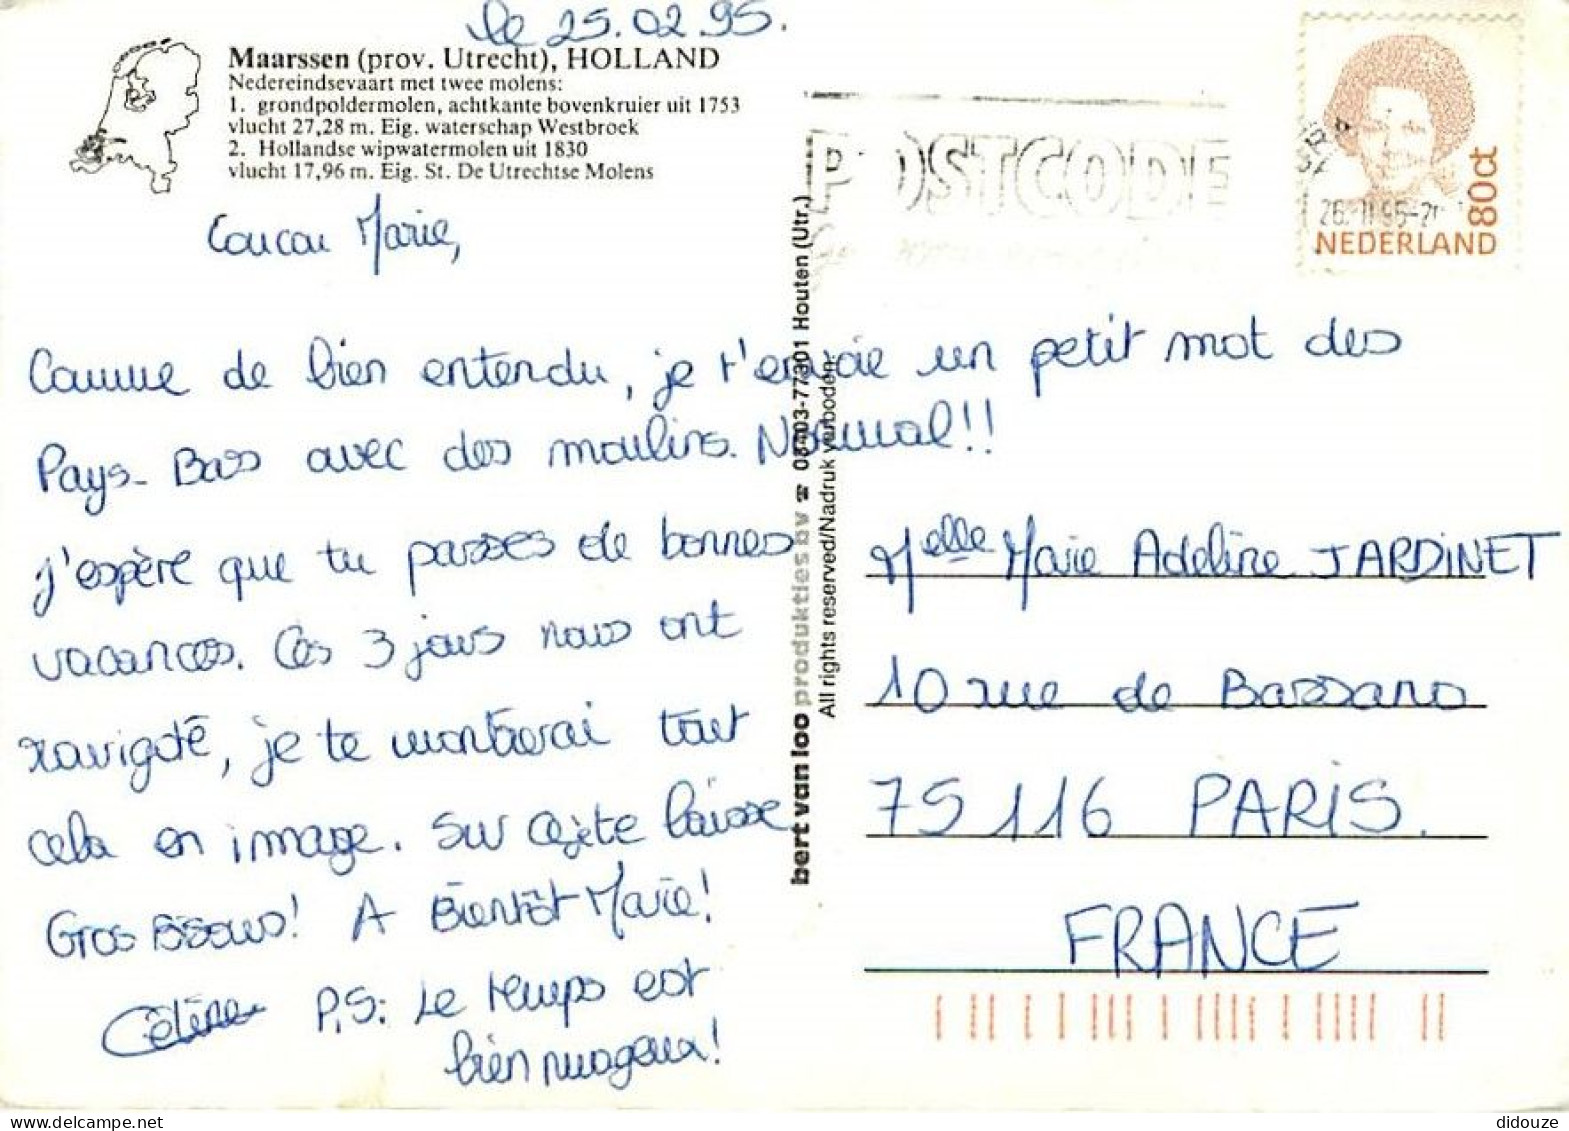 le 25.02.95.
Maarssen (prov. Utrecht), HOLLAND
Nedereindsevaart met twee molens:
1. grondpoldermolen, achtkante bovenkruier uit 1753
vlucht 27,28 m. Eig. waterschap Westbroek
2. Hollandse wipwatermolen uit 1830
vlucht 17,96 m. Eig. St. De Utrechtse Molens
POSTCODE
80ct
NEDERLAND
Coucou Marie,
Comme de bien entendu, je t'envoie un petit mot des
Pays-Bas avec des moulins. Normal!!
j'espère que tu passes de bonnes
vacances. Ces 3 jours nous ont
ravigoté, je te montrerai tout
cela en image. Sur ce je te laisse
Gros Bisous! A Bientôt Marie!
Céline P.S: Le temps est
bien nuageux!
bert van loo produkties bv ☎ 08403-77301 Houten (Utr.)
All rights reserved/Nadruk verboden.
Melle Marie Adeline JARDINET
10 rue de Bassano
75116 PARIS.
FRANCE
didouze